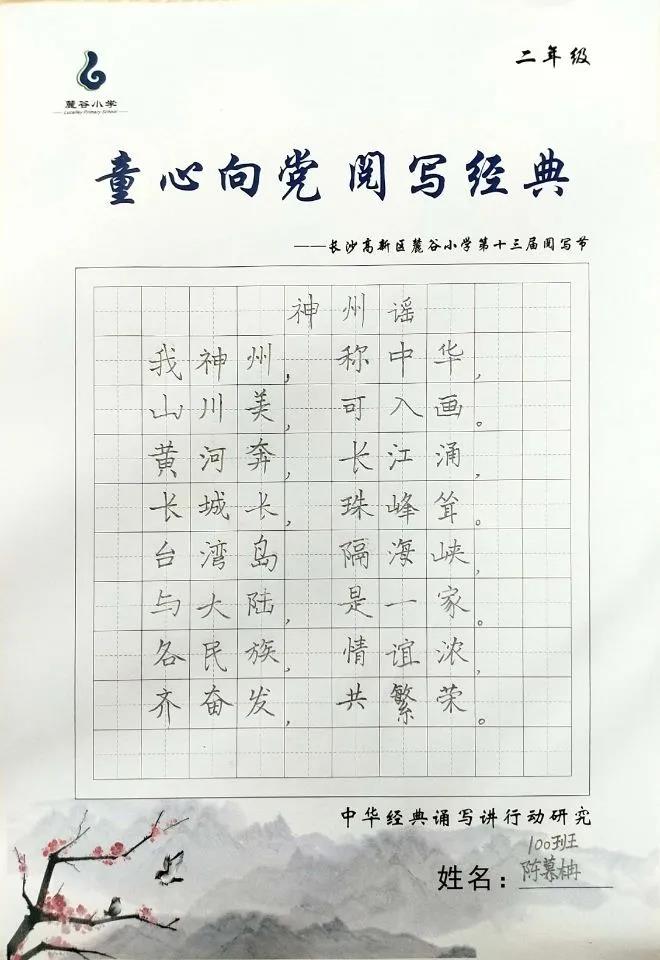 二年级
麓谷小学
Lucalley Primary School
童心向党 阅写经典
——长沙高新区麓谷小学第十三届阅写节
神州谣
我神州，称中华，
山川美，可入画。
黄河奔，长江涌，
长城长，珠峰耸。
台湾岛 隔海峡，
与大陆，是一家。
各民族，情谊浓，
齐奋发，共繁荣。
中华经典诵写讲行动研究
100班
姓名：陈慕柟